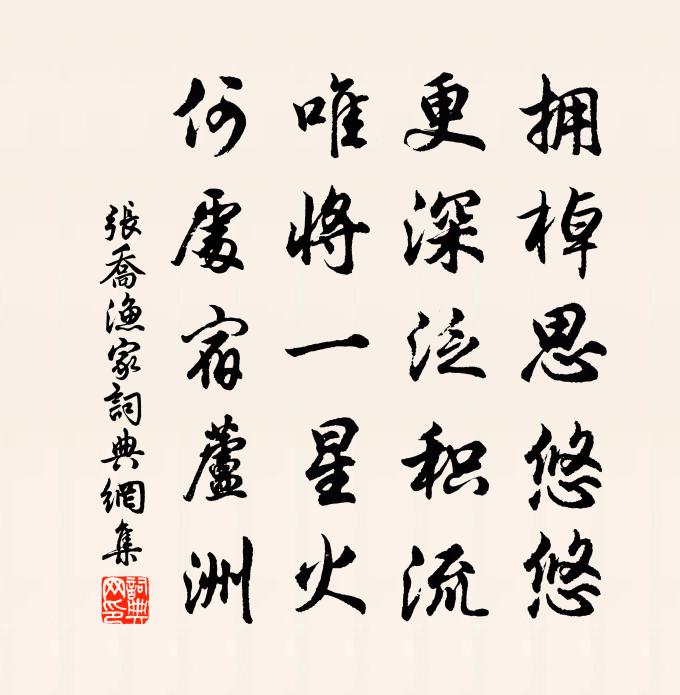 拥棹思悠悠
更深泛积流
唯将一星火
何處宿蘆洲
張喬漁家詞典網集
詞典网印